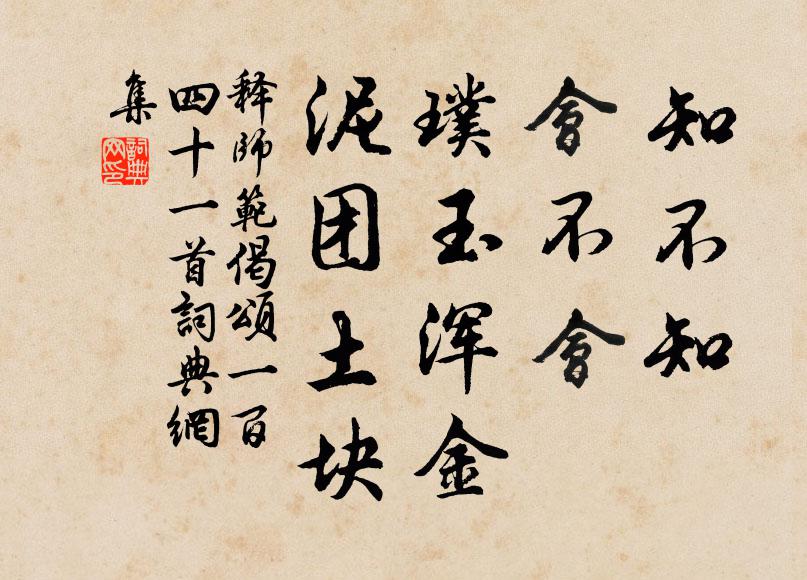 知不知
會不會
璞玉浑金
泥团土块
释師範偈頌一百
四十一首詞典網
集
詞典
网印